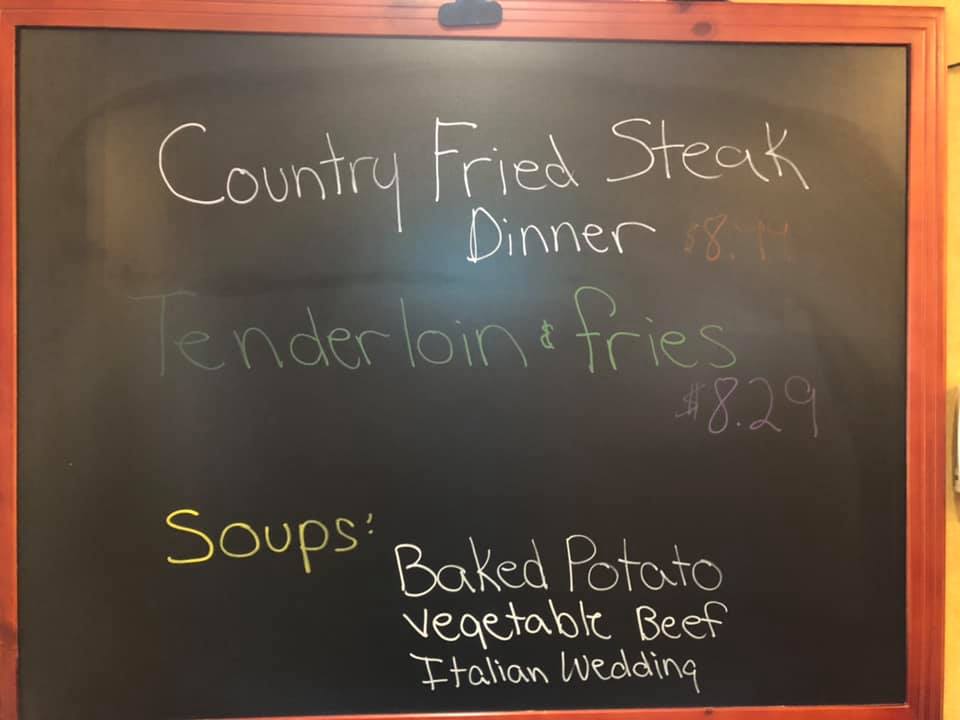 Country Fried Steak
Dinner $8.99
Tenderloin & fries
$8.29
Soups:
Baked Potato
vegetable Beef
Italian Wedding